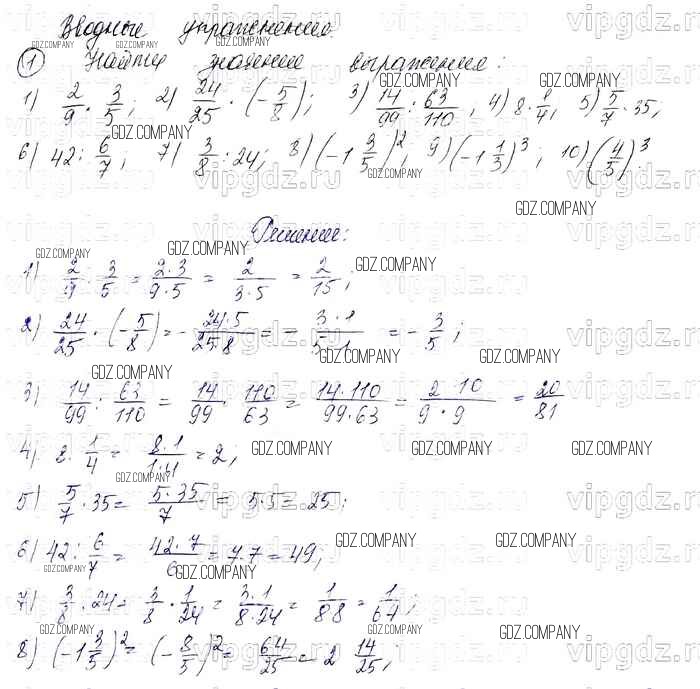 Вводные упражнения
① Найти значение выражения:
1) 2/9 · 3/5; 2) 24/25 · (-5/8); 3) 14/99 : 63/110, 4) 8 · 1/4, 5) 5/7 · 35;
6) 42 : 6/7; 7) 3/8 : 24; 8) (-1 3/5)², 9) (-1 1/3)³; 10) (4/5)³.
Решение:
1) 2/9 · 3/5 = 2·3/9·5 = 2/3·5 = 2/15;
2) 24/25 · (-5/8) = - 24·5/25·8 = - 3·1/5·1 = - 3/5;
3) 14/99 : 63/110 = 14/99 · 110/63 = 14·110/99·63 = 2·10/9·9 = 20/81
4) 8 · 1/4 = 8·1/1·4 = 2;
5) 5/7 · 35 = 5·35/7 = 5·5 = 25;
6) 42 : 6/7 = 42·7/6 = 7·7 = 49;
7) 3/8 : 24 = 3/8 · 1/24 = 3·1/8·24 = 1/88 = 1/64;
8) (-1 3/5)² = (-8/5)² = 64/25 = 2 14/25;
GDZ.COMPANY
vipgdz.ru